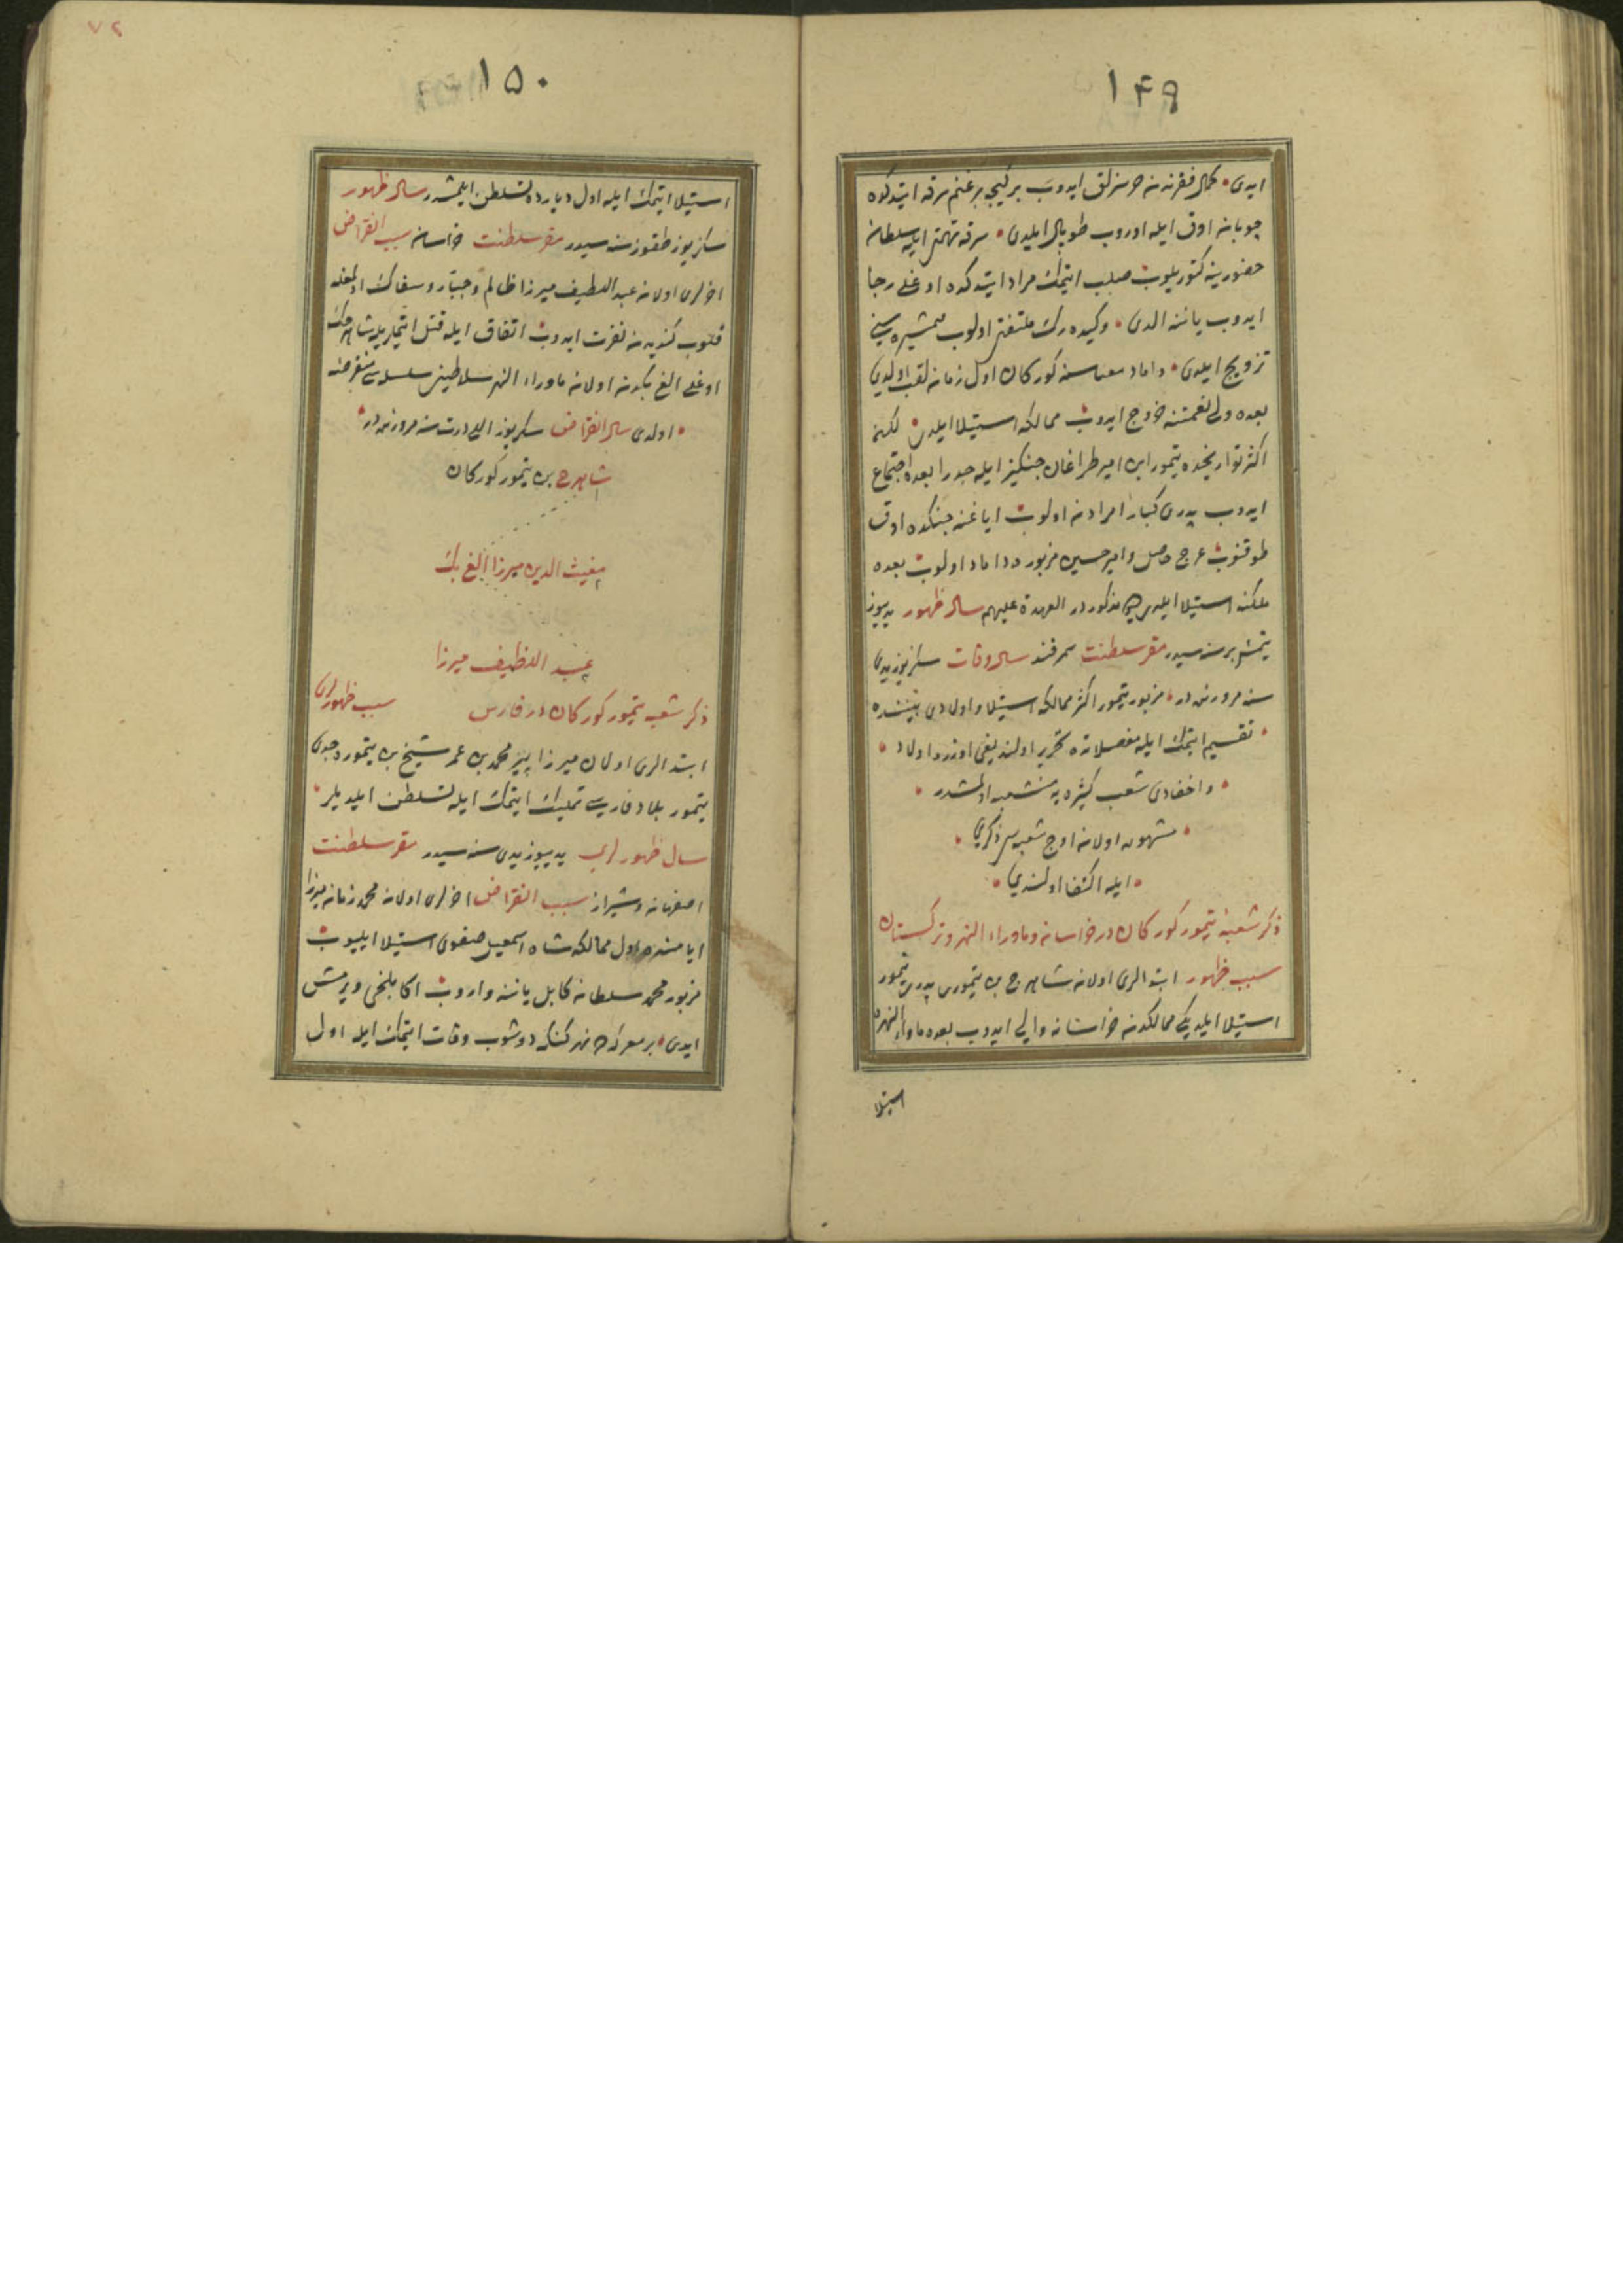 ١٤٩
ايدى كمال فقرندن خرسزلق ايدوب بر كيجه بر غنم سرقه ايتدكده
چوبان اوق ايله اوروب طوپال ايلدى سرقه تهمتى ايله سلطان
حضورينه كتوريلوب صلب ايتمك مراد ايتدكده اوغلى رجا
ايدوب ياننه الدى وكيده رك ملتفتى اولوب همشيره سينى
تزويج ايلدى داماد معناسنه كوركان اول زمان لقب اولدى
بعده ولى نعمتنه خروج ايدوب ممالكه استيلا ايلدى لكن
اكثر تواريخده تيمور ابن امير طراغان جنكيز ايله جد رابعده اجتماع
ايدوب پدرى كبار امرادن اولوب اياغنه جنكده اوق
طوقنوب عرج حاصل وامير حسين مزبوره داماد اولوب بعده
ملكنه استيلا ايلدى مذكوردر العهدة عليهم سال ظهور يديوز
يتمش بر سنه سيدر مقر سلطنت سمرقند سال وفات سكز يوز يدى
سنه مرورنده در مزبور تيمور اكثر ممالكه استيلا واولادى بيننده
تقسيم ايتمك ايله مفصلاتده تحرير اولنديغى اوزره اولاد
واحفادى شعب كثيره يه منشعب اولمشدر
مشهور اولان اوج شعبه سى ذكرى
ايله اكتفا اولندى
ذكر شعبه تيمور كوركان در خراسان وماوراء النهر وتركستان
سبب ظهور ابتدالرى اولان شاهرخ بن تيمورى پدرى تيمور
استيلا ايلديكى ممالكدن خراسانه والى ايدوب بعده ماوراء النهره
استيلا
٧٢
١٥٠
استيلا ايتمك ايله اول ديارده تسلطن ايلمشدر سال ظهور
سكز يوز طقوز سنه سيدر مقر سلطنت خراسان سبب انقراض
اخرلرى اولان عبد اللطيف ميرزا ظالم وجبار وسفاك اولمغله
قلوب كنديدن نفرت ايدوب اتفاق ايله قتل ايتديلر شاهرخك
اوغلى الغ بكدن اولان ماوراء النهر سلاطينى سلسله سى منقرض
اولدى سال انقراض سكز يوز اللى درت سنه مرورنده در
شاهرخ بن تيمور كوركان
مغيث الدين ميرزا الغ بك
عبد اللطيف ميرزا
ذكر شعبه تيمور كوركان در فارس سبب ظهورلرى
ابتدالرى اولان ميرزا پير محمد بن عمر شيخ بن تيمور در جدى
تيمور بلاد فارسى تمليك ايتمك ايله تسلطن ايلديلر
سال ظهورلرى يديوز يدى سنه سيدر مقر سلطنت
اصفهان وشيراز سبب انقراض اخرلرى اولان محمد زمان ميرزا
ايامنده اول ممالكه شاه اسمعيل صفوى استيلا ايليوب
مزبور محمد سلطان كابل ياننه واروب اكا بلخى ويرمش
ايدى بر معركه ده نهر كنكه دوشوب وفات ايتمك ايله اول